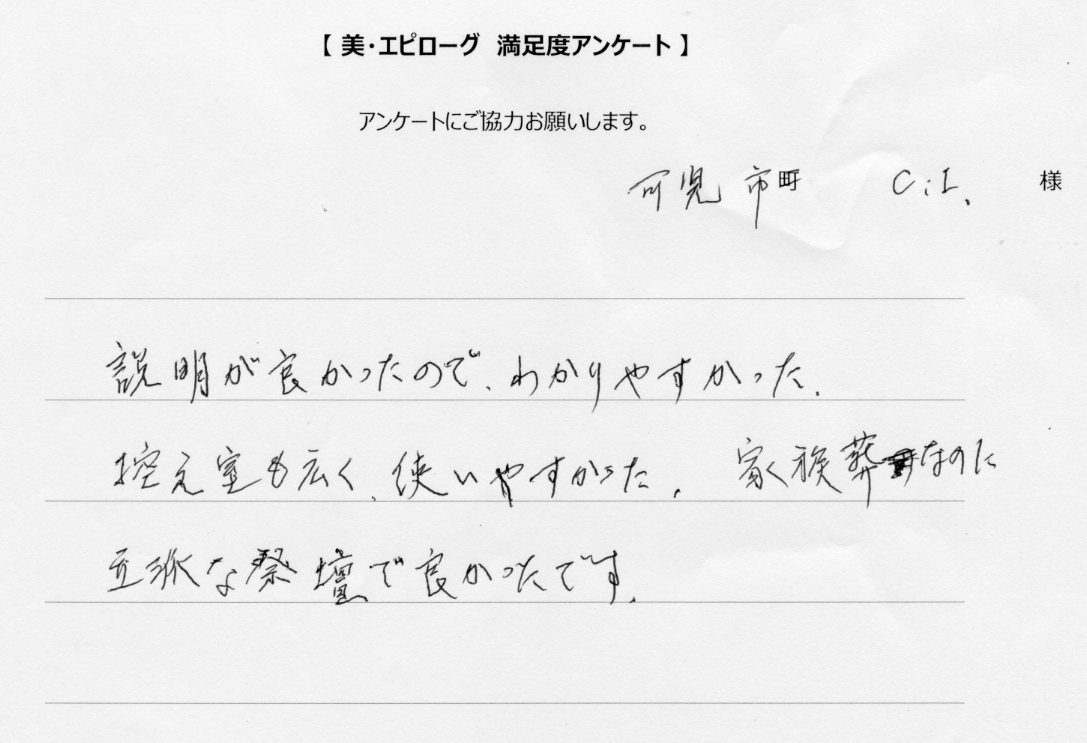 【 美・エピローグ 満足度アンケート 】
アンケートにご協力お願いします。
可児市町 C.I. 様
説明が良かったので、わかりやすかった。
控え室も広く、使いやすかった。家族葬なのに
立派な祭壇で良かったです。